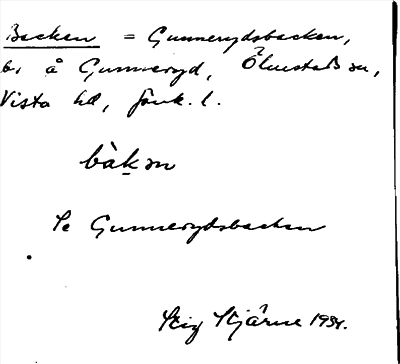 Backen = Gunnerydsbacken,
b. å Gunneryd, Ölmstad sn,
Vista hd, Jönk. l.
bàkən
Se Gunnerydsbacken
Stig Stjärne 1934.